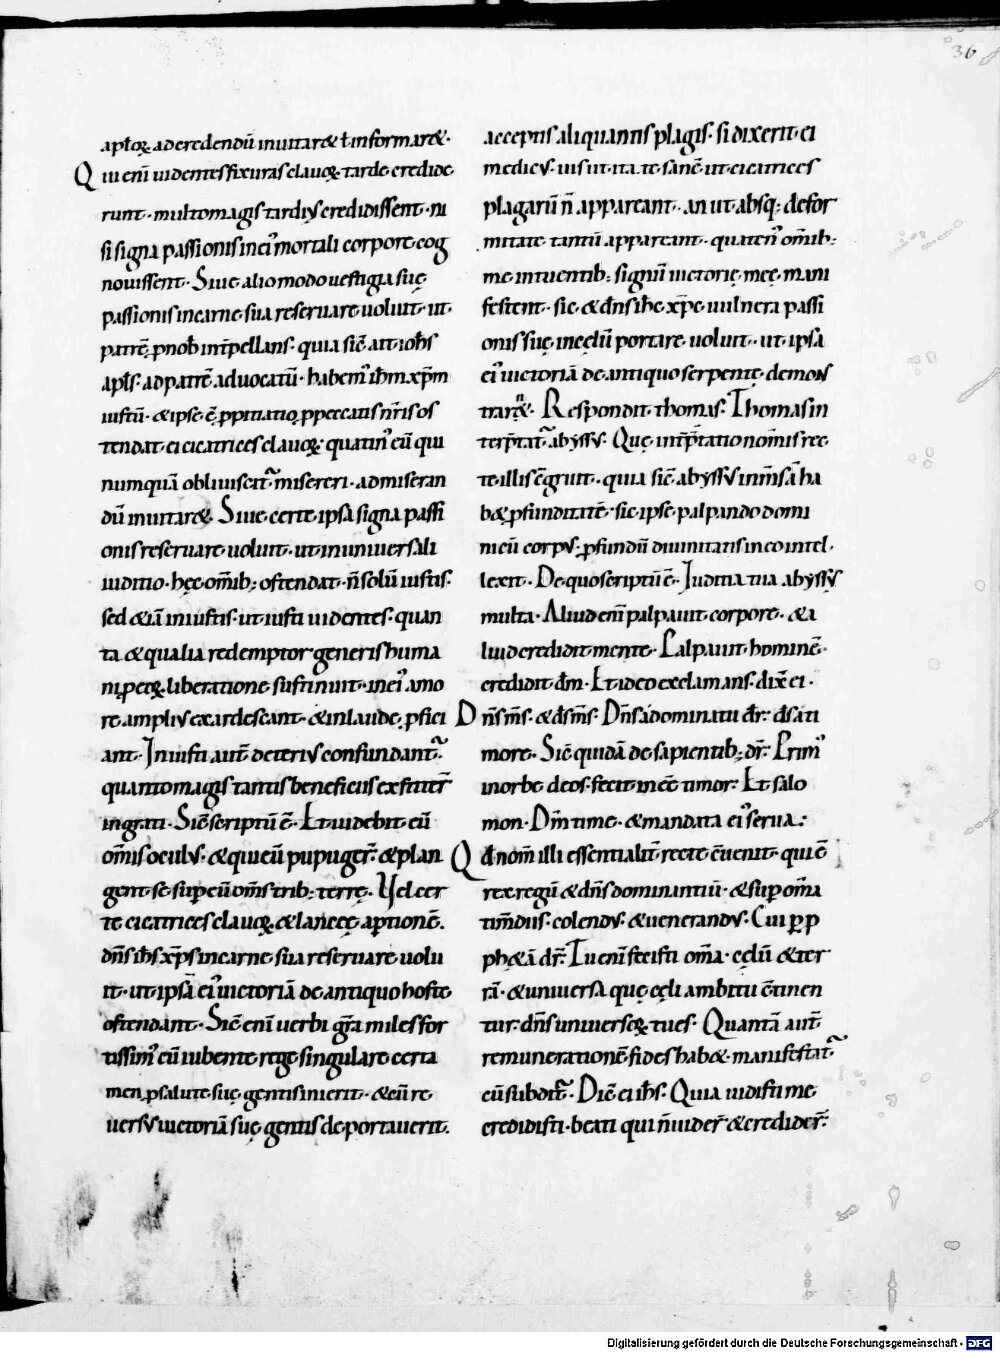 36
aptoꝝ. ad credendū inuitaret ł informaret.
Qui eni uidentes fixuras clauoꝝ. tarde credide
runt. multo magis tardius credidissent. ni
si signa passionis in ei' mortali corpore cog
nouissent. Siue alio modo uestigia suę
passionis in carne sua reseruare uoluit. ut
patrē p nob intpellans. quia sic ait iohs
apls. ad patrē aduocatū. habem' ihm xpm
iustū. & ipse ē ppitiatio p peccatis nris os
tendat ei cicatrices clauoꝝ. quatin' eū qui
numquā obliuiscit misereri. ad miseran
dū inuitaret. Siue certe ipsa signa passi
onis reseruare uoluit. ut in uniuersali
iuditio. hęc omib; ostendat. n̄ solū iustis.
sed & iā iniustis. ut iusti uidentes. quan
ta & qualia redemptor generis huma
ni. p eoꝝ liberatione sustinuit. in ei' amo
re amplius exardescant. & in laude pfici
ant. Iniusti aut deterius confundant.
quanto magis tantis beneficiis exstiter
ingrati. Sic scriptū ē. Et uidebit eū
omis oculus. & qui eū pupuger. & plan
gent se sup eū oms trib; terrę. Vel cer
te cicatrices clauoꝝ. & lanceę aptionē.
dns ihs xps in carne sua reseruare uolu
it. ut ipsā ei' uictoriā de antiquo hoste
ostendant. Sic eni uerbi gra miles for
tissim' eū iubente rege singulare certa
men p salute suę gentis inierit. & cū re
uersus uictoriā suę gentis deportauerit.
acceptis aliquantis plagis. si dixerit ei
medicus. uis ut ita te sanē ut cicatrices
plagarū n̄ appareant. an ut absq; defor
mitate tantū appareant. quaten' omib;
me intuentib; signū uictorię meę mani
festent. sic & dns ihc xpc uulnera passi
onis suę in cęlū portare uoluit. ut ipsā
ei' uictoriā de antiquo serpente demons
trarent. Respondit thomas. Thomas in
terptat abyssus. Quę intptatio nomis rec
te illis cgruit. quia sic abyssus inmsā ha
bet pfunditatē. sic ipse palpando domi
nicū corpus. pfundū diuinitatis in eo intel
lexit. De quo scriptū ē. Iuditia tua abyssus
multa. Aliud eni palpauit corpore. & a
liud credidit mente. Palpauit hominē.
credidit dm. Et ideo exclamans. dixit ei.
Dns ms. & ds ms. Dns a dominatu dr. ds a ti
more. Sic quidā de sapientib; dr. Prim'
in orbe deos. fecit in ee timor. Et salo
mon. Dm time. & mandata ei' serua.
Qd nom illi essentialit recte cuenit. qui ē
rex regū & dns dominantiū. & sup oma
timdus. colendus. & uenerandus. Cui p p
phetā dr. Tu eni fecisti oma. cęlū & ter
rā. & uniuersa quę cęli ambitu ctinen
tur. dns uniuersoꝝ tu es. Quantā aut
remunerationē fides habet. manifestat
cū subdit. Dic ei ihs. Quia uidisti me
credidisti. beati qui n̄ uider & credider.
Digitalisierung gefördert durch die Deutsche Forschungsgemeinschaft - DFG